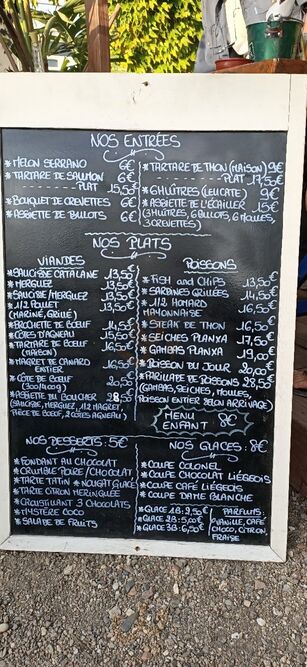 NOS ENTRÉES
* MELON SERRANO 6€
* TARTARE DE SAUMON 6€
- - - - - - - - PLAT 15,50€
* BOUQUET DE CREVETTES 6€
* ASSIETTE DE BULOTS 6€
* TARTARE DE THON (MAISON) 9€
- - - - - - - - PLAT 17,50€
* 6 HUÎTRES (LEUCATE) 9€
* ASSIETTE DE L'ÉCAILLER 15€
(3 HUÎTRES, 6 BULOTS, 6 MOULES,
3 CREVETTES)
NOS PLATS
VIANDES
* SAUCISSE CATALANE 13,50€
* MERGUEZ 13,50€
* SAUCISSE/MERGUEZ 13,50€
* 1/2 POULET 13,50€
(MARINÉ, GRILLÉ)
* BROCHETTE DE BŒUF 14,50€
* CÔTES D'AGNEAU 15,50€
* TARTARE DE BŒUF 16,50€
(MAISON)
* MAGRET DE CANARD 16,50€
ENTIER
* CÔTE DE BŒUF 20,50€
(300/400g)
* ASSIETTE DU BOUCHER 28,50€
(SAUCISSE, MERGUEZ, 1/2 MAGRET,
PIÈCE DE BŒUF, 2 CÔTES AGNEAU)
POISSONS
* FISH AND CHIPS 13,50€
* SARDINES GRILLÉES 14,50€
* 1/2 HOMARD 16,50€
MAYONNAISE
* STEAK DE THON 16,50€
* SEICHES PLANXA 17,50€
* GAMBAS PLANXA 19,00€
* POISSON DU JOUR 20,00€
* PARILLADE DE POISSONS 28,50€
(GAMBAS, SEICHES, MOULES,
POISSON ENTIER SELON ARRIVAGE)
MENU
ENFANT 8€
NOS DESSERTS: 5€
* FONDANT AU CHOCOLAT
* CROUTADE POIRE/CHOCOLAT
* TARTE TATIN * NOUGAT GLACÉ
* TARTE CITRON MERINGUÉE
* CROUSTILLANT 3 CHOCOLATS
* MYSTÈRE COCO
* SALADE DE FRUITS
NOS GLACES: 8€
* COUPE COLONEL
* COUPE CHOCOLAT LIÉGEOIS
* COUPE CAFÉ LIÉGEOIS
* COUPE DAME BLANCHE
* GLACE 1B: 2,50€
* GLACE 2B: 5,00€
* GLACE 3B: 6,50€
PARFUMS:
VANILLE, CAFÉ
CHOCO, CITRON,
FRAISE